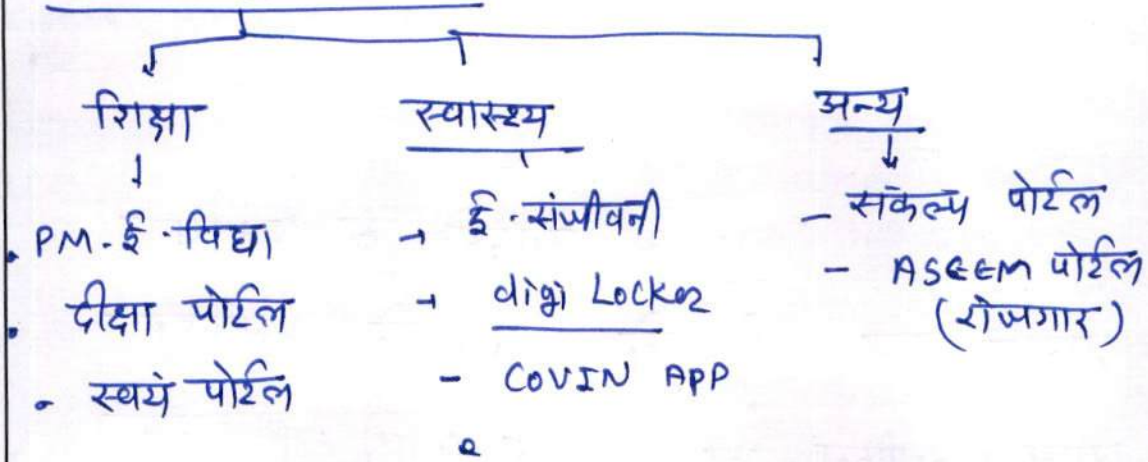 शिक्षा
PM-ई-विद्या
दीक्षा पोर्टल
स्वयं पोर्टल
स्वास्थ्य
ई-संजीवनी
digi Locker
COVIN APP
अन्य
संकल्प पोर्टल
ASEEM पोर्टल
(रोजगार)